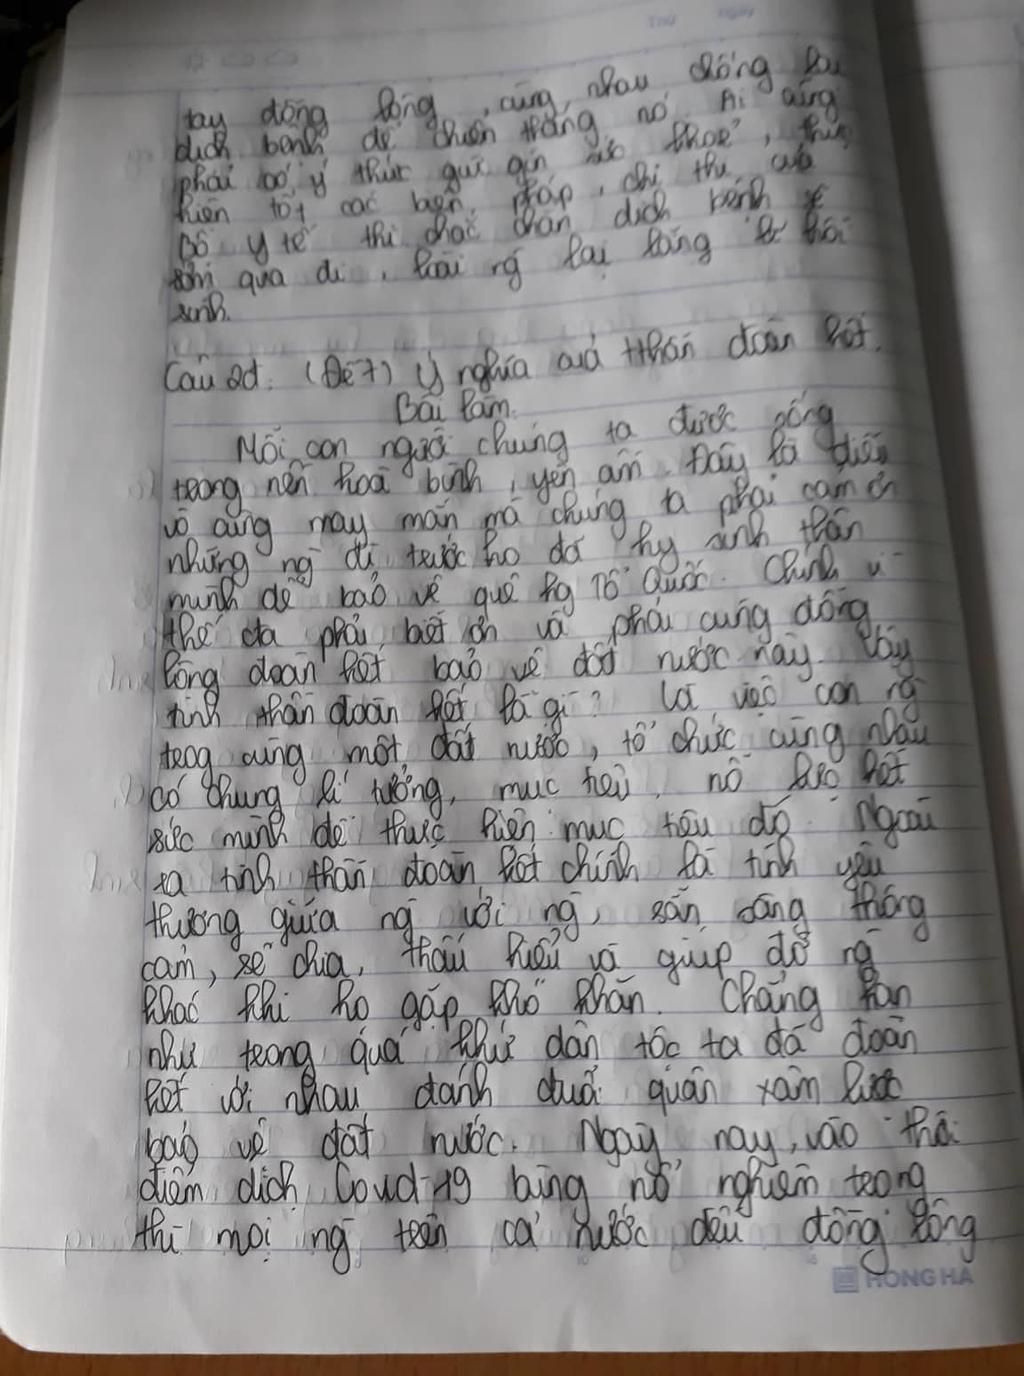 Thứ Ngày
tay đồng lòng, cùng nhau chống lại
dịch bệnh để chiến thắng nó. Ai cũng
phải có ý thức giữ gìn sức khoẻ, thực
hiện tốt các biện pháp, chỉ thị của
Bộ y tế thì chắc chắn dịch bệnh sẽ
sớm qua đi, loài ng lại sống hồi
sinh.
Câu 2d: (Đề 7) Ý nghĩa của tthần đoàn kết.
Bài làm.
Mỗi con người chúng ta được sống
trong nền hoà bình, yên ấm. Đây là điều
vô cùng may mắn mà chúng ta phải cảm ơn
những ng đi trước họ đã hy sinh thân
mình để bảo vệ quê hg Tổ Quốc. Chính vì
thế ta phải biết ơn và phải cùng đồng
lòng đoàn kết bảo vệ đất nước này. Vậy
tinh thần đoàn kết là gì? Là việc con ng
trog cùng một đất nước, tổ chức cùng nhau
có chung lí tưởng, mục tiêu, nỗ lực hết
sức mình để thực hiện mục tiêu đó. Ngoài
ra tinh thần đoàn kết chính là tình yêu
thương giữa ng với ng, sẵn sàng thông
cảm, sẻ chia, thấu hiểu và giúp đỡ ng
khác khi họ gặp khó khăn. Chẳng hạn
như trong quá khứ dân tộc ta đã đoàn
kết với nhau đánh đuổi quân xâm lược
bảo vệ đất nước. Ngày nay, vào thời
điểm dịch Covid-19 bùng nổ nghiêm trọng
thì mọi ng trên cả nước đều đồng lòng
HONG HA